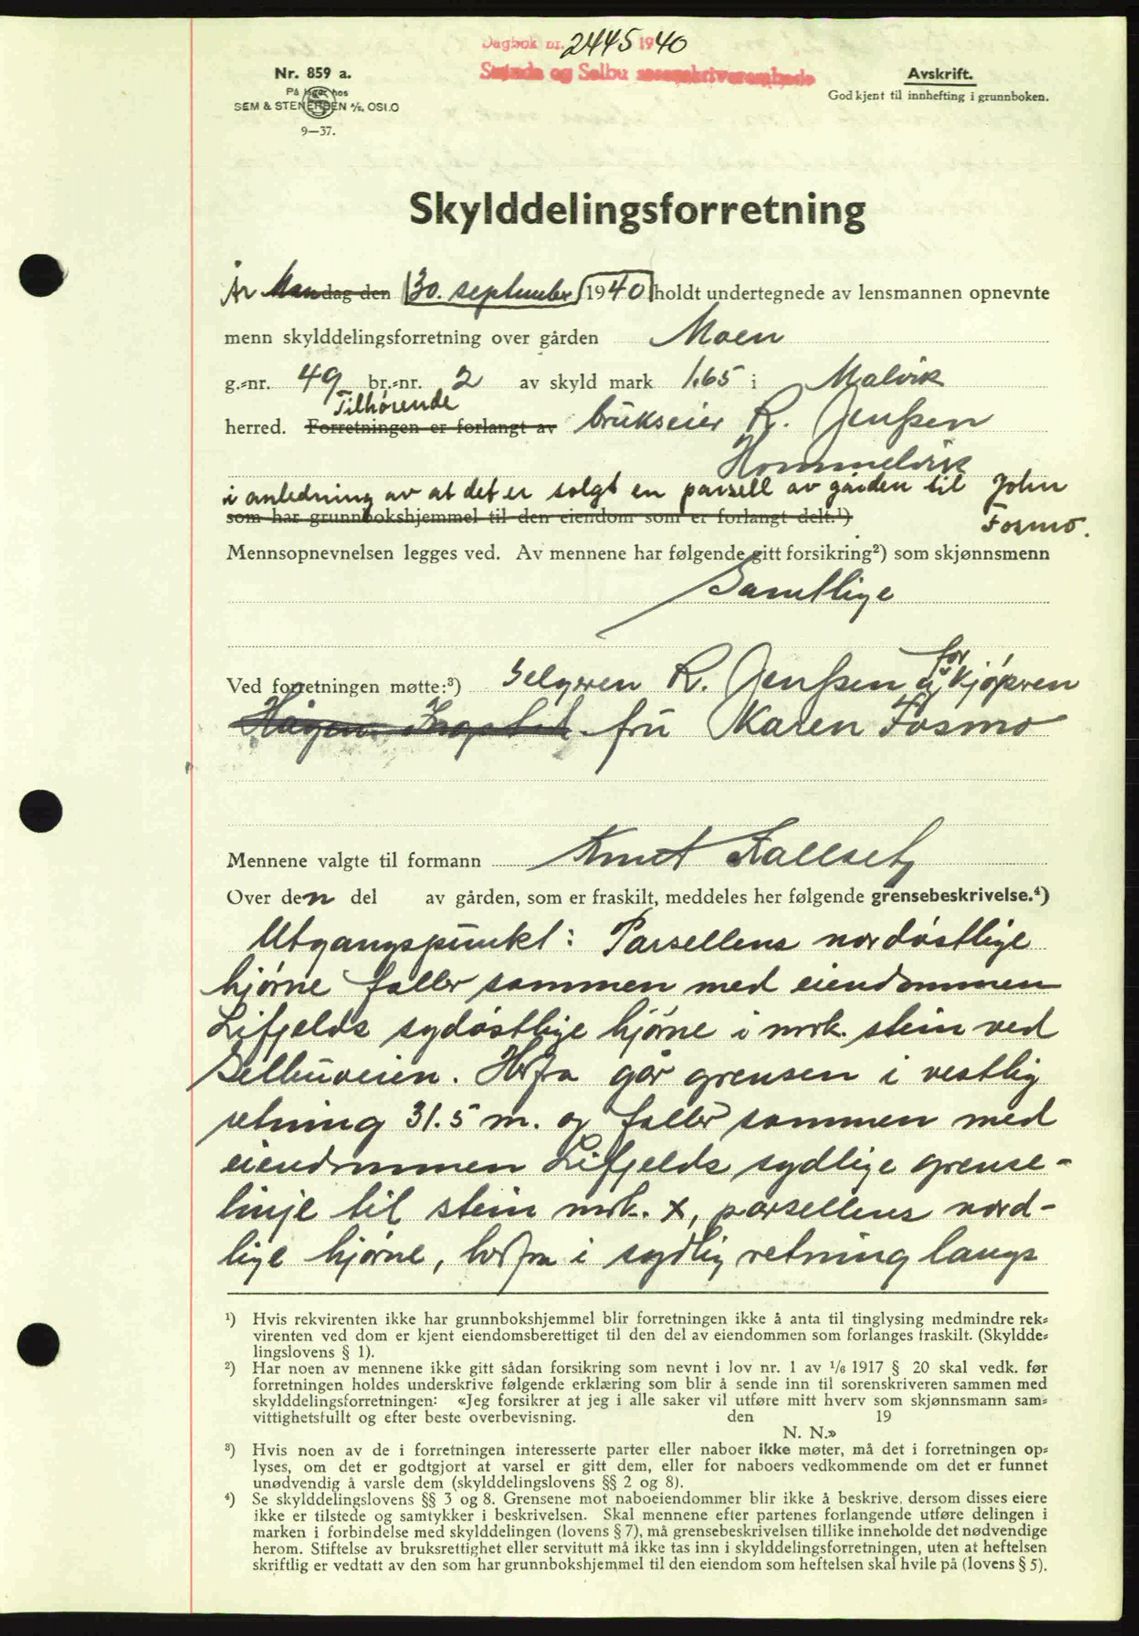 Dagbok nr. 2445 1940
Strinda og Selbu sorenskriverembede
Nr. 859 a.
På lager hos
SEM & STENERSEN A/S, OSLO
9—37.
Avskrift.
Godkjent til innhefting i grunnboken.
Skylddelingsforretning
År Mandag den 30. september 1940 holdt undertegnede av lensmannen opnevnte
menn skylddelingsforretning over gården Moen
g.-nr. 49 br.-nr. 2 av skyld mark 1.65 i Malvik
Tilhørende
herred. Forretningen er forlangt av brukseier R. Jenssen
Hommelvik
i anledning av at det er solgt en parsell av gården til John
som har grunnbokshjemmel til den eiendom som er forlangt delt.¹) Fosmo.
Mennsopnevnelsen legges ved. Av mennene har følgende gitt forsikring²) som skjønnsmenn
Samtlige
for
Ved forretningen møtte:³) Selgeren R. Jenssen og kjøperen
Hågen fru Karen Fosmo
Mennene valgte til formann Knut Hallset
Over den del av gården, som er fraskilt, meddeles her følgende grensebeskrivelse.⁴)
Utgangspunkt: Parsellens nordøstlige
hjørne faller sammen med eiendommen
Lifjelds sydøstlige hjørne i mrk. stein ved
Selbuveien. Herfra går grensen i vestlig
retning 31.5 m. og faller sammen med
eiendommen Lifjelds sydlige grense-
linje til stein mrk. x, parsellens nord-
lige hjørne, herfra i sydlig retning langs
¹) Hvis rekvirenten ikke har grunnbokshjemmel blir forretningen ikke å anta til tinglysing medmindre rek-
virenten ved dom er kjent eiendomsberettiget til den del av eiendommen som forlanges fraskilt. (Skyldde-
lingslovens § 1).
²) Har noen av mennene ikke gitt sådan forsikring som nevnt i lov nr. 1 av 1/6 1917 § 20 skal vedk. før
forretningen holdes underskrive følgende erklæring som blir å sende inn til sorenskriveren sammen med
skylddelingsforretningen: «Jeg forsikrer at jeg i alle saker vil utføre mitt hverv som skjønnsmann sam-
vittighetsfullt og efter beste overbevisning. den 19
N. N.»
³) Hvis noen av de i forretningen interesserte parter eller naboer ikke møter, må det i forretningen op-
lyses, om det er godtgjort at varsel er gitt dem, eller for naboers vedkommende om det er funnet
unødvendig å varsle dem (skylddelingslovens §§ 2 og 8).
⁴) Se skylddelingslovens §§ 3 og 8. Grensene mot naboeiendommer blir ikke å beskrive, dersom disses eiere
ikke er tilstede og samtykker i beskrivelsen. Skal mennene efter partenes forlangende utføre delingen i
marken i forbindelse med skylddelingen (lovens § 7), må grensebeskrivelsen tillike inneholde det nødvendige
herom. Stiftelse av bruksrettighet eller servitutt må ikke tas inn i skylddelingsforretningen, uten at heftelsen
skriftlig er vedtatt av den som har grunnbokshjemmel til den eiendom som heftelsen skal hvile på (lovens § 5).